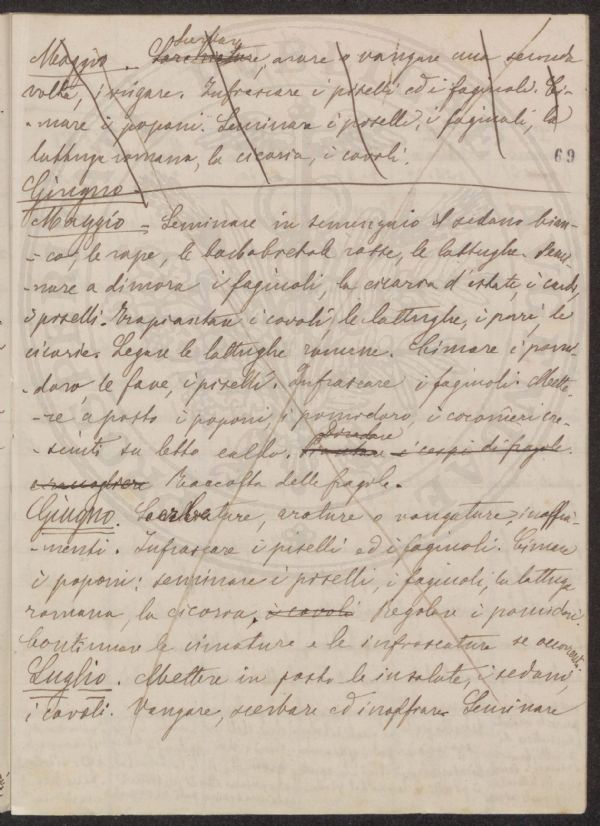 Scerbare
Maggio. Sarchiature, arare o vangare una seconda
volta, irrigare. Infrascare i piselli ed i fagiuoli. Ci-
-mare i poponi. Seminare i piselli, i fagiuoli, la
lattuga romana, la cicoria, i cavoli.
69
Giugno.
Maggio = Seminare in semenzaio il sedano bian-
-co, le rape, le barbabietole rosse, le lattughe. Semi-
-nare a dimora i fagiuoli, la cicoria d'estate, i cardi,
i piselli. Trapiantare i cavoli, le lattughe, i porri, le
cicorie. Legare le lattughe romane. Cimare i pomi-
-doro, le fave, i piselli. Infrascare i fagiuoli. Mette-
-re a posto i poponi, i pomodoro, i cocomeri cre-
-sciuti su letto caldo. Piantare i cespi di fragole.
Raccolta delle fragole.
Giugno. Scerbature, arature o vangature, innaffia-
-menti. Infrascare i piselli ed i fagiuoli. Cimare
i poponi: seminare i piselli, i fagiuoli, la lattuga
romana, la cicoria, i cavoli Regolare i pomidori.
Continuare le cimature e le infrascature se occorrenti
Luglio. Mettere in posto le insalate, i sedani,
i cavoli. Vangare, scerbare ed innaffiare. Seminare